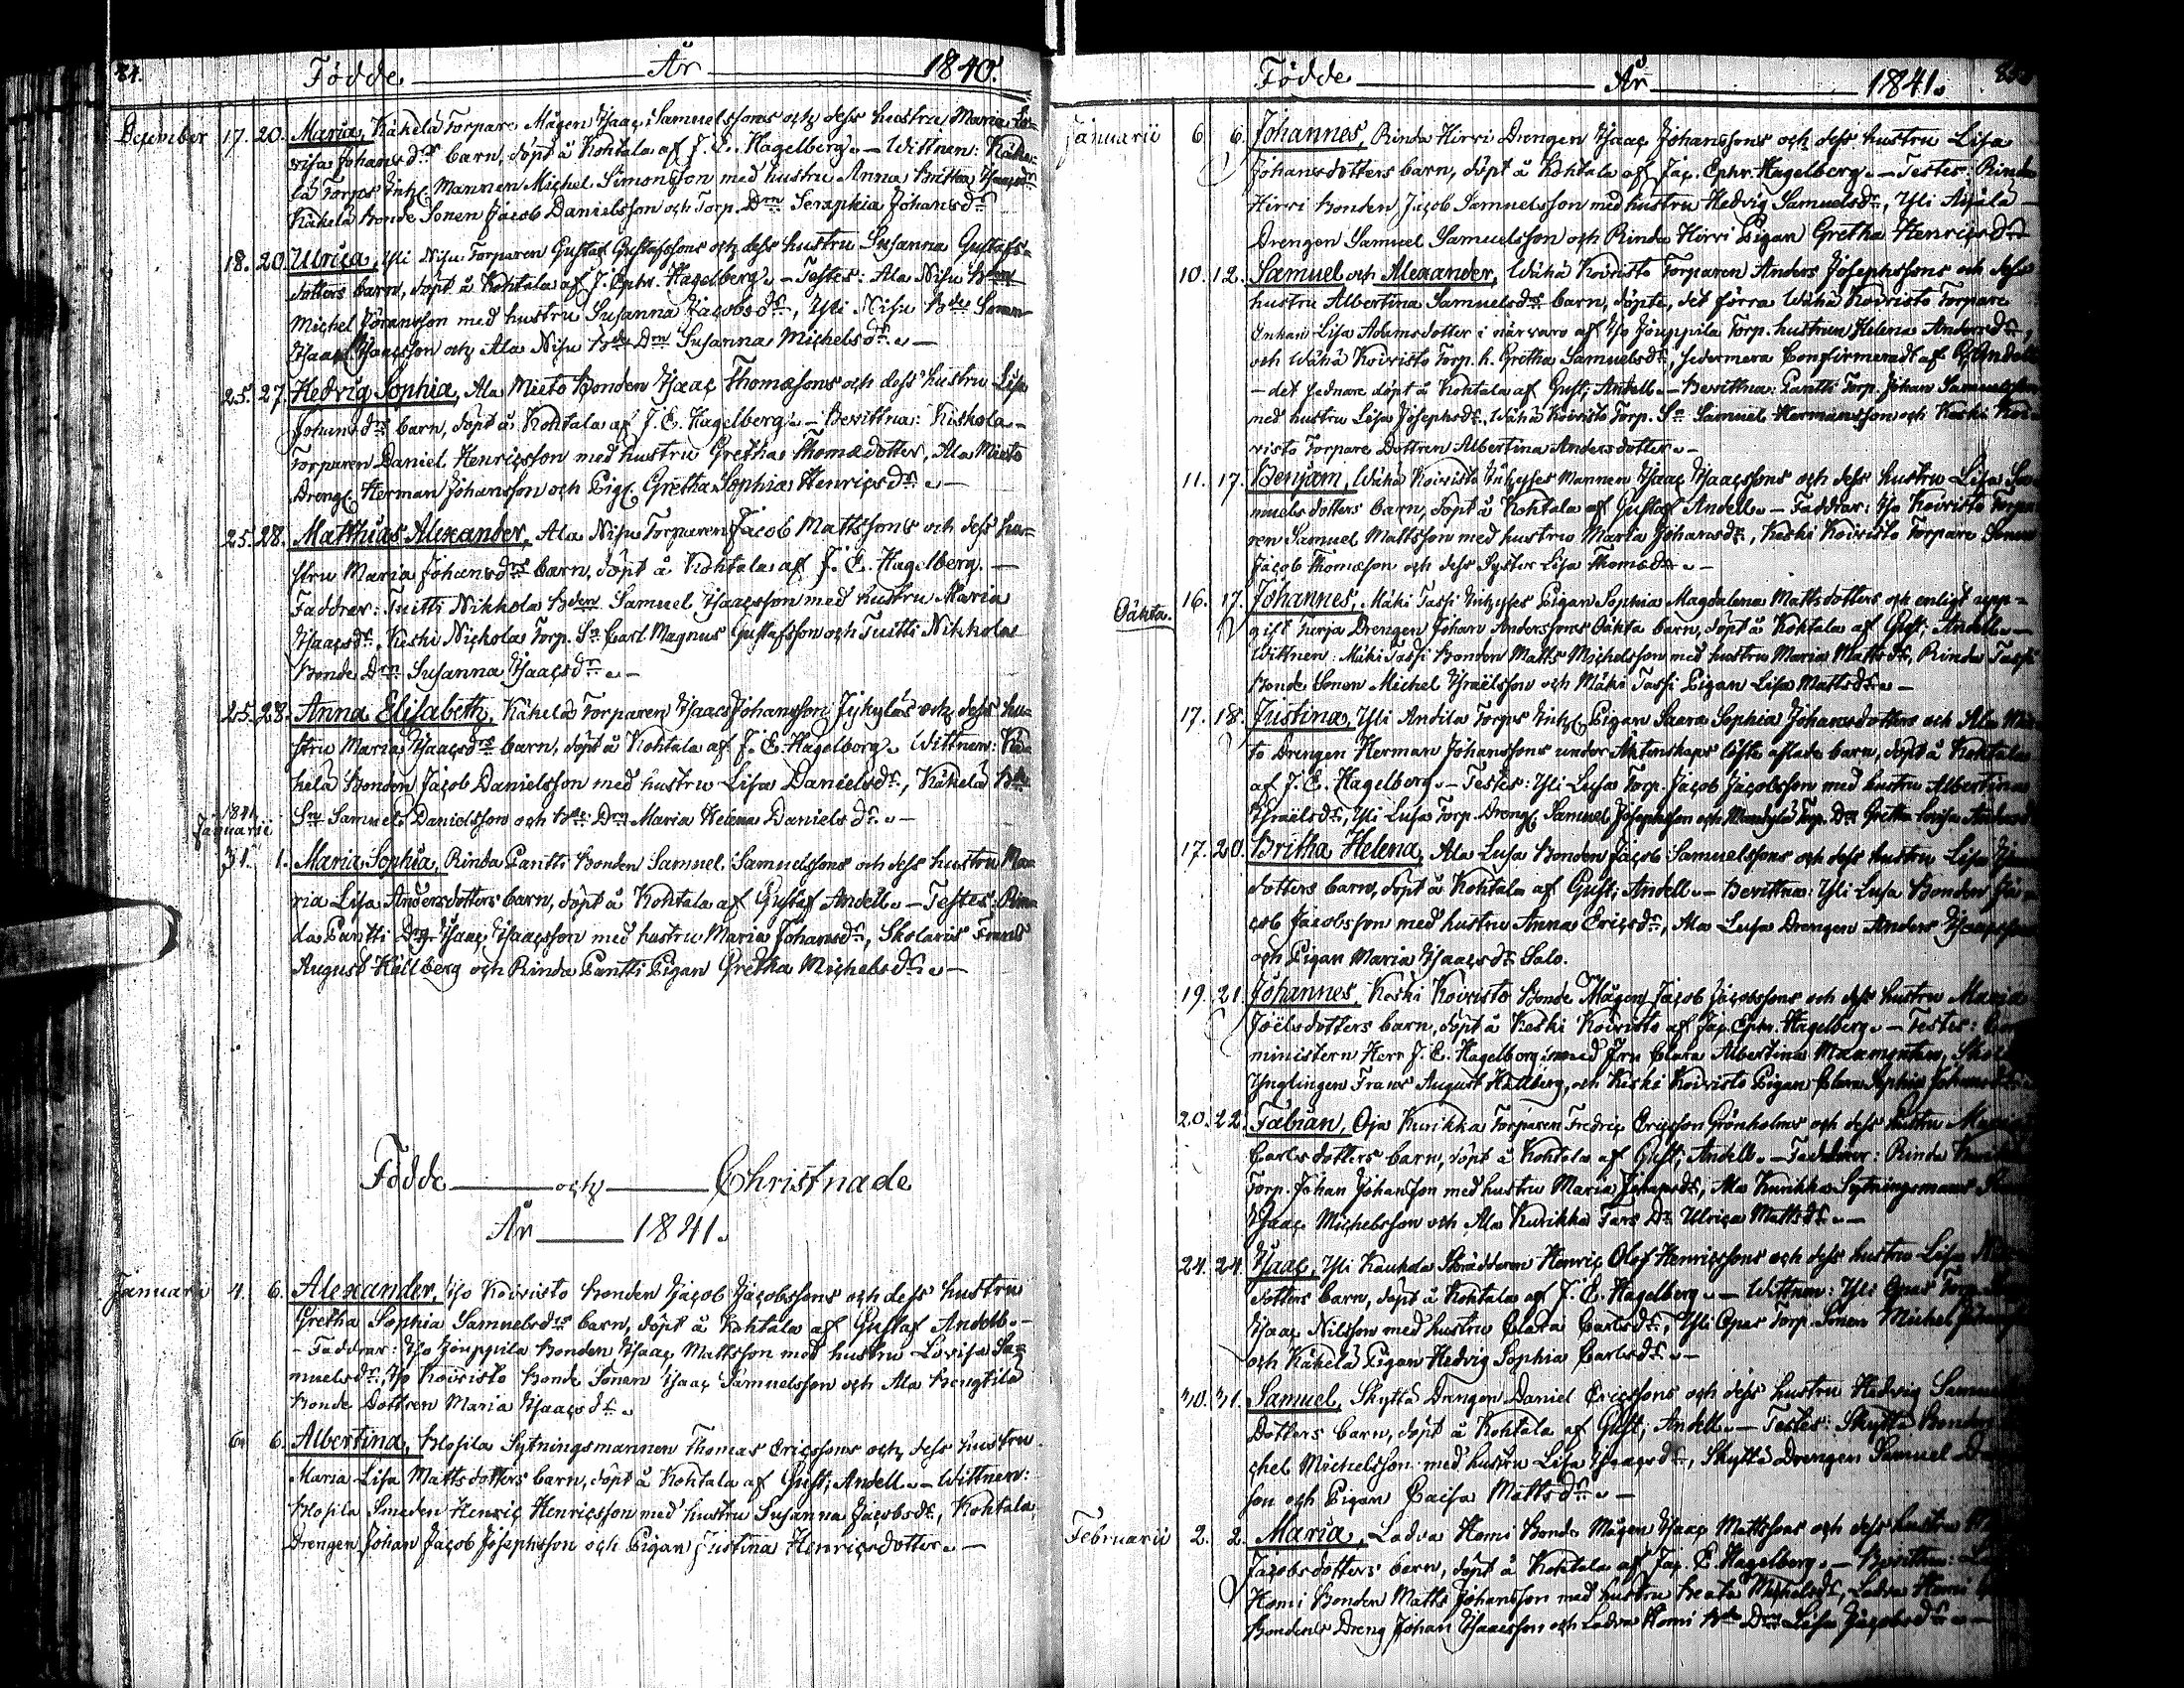 84.
Födde År 1840.
December 17. 20. Maria, Kähelä Torpare Mågen Isaac Samuelssons och dess hustru Maria Lo-
visa Johansdrs barn, döpt å Kohtala af J. E. Hagelberg. — Wittnen: Kähe-
lä Torps Inh. Mannen Michel Simonsson med hustru Anna Britha Isaacsdr
Kähelä Bonde Sonen Jacob Danielsson och Torp. Drn Seraphia Johansdr
18. 20. Ulrica, Yli Nisu Torparen Gustaf Gustafssons och dess hustru Susanna Gustafs-
dotters barn, döpt å Kohtala af J. Ephr. Hagelberg. — Testes: Ala Nisu Bden
Michel Göransson med hustru Susanna Jacobsdr, Yli Nisu Bde Sonen
Isaac Isaacsson och Ala Nisu Bde Drn Susanna Michelsdr. —
25. 27. Hedvig Sophia, Ala Mieto Bonden Isaac Thomæsons och dess hustru Lisa
Johansdrs barn, döpt å Kohtala af J. E. Hagelberg. — Bevittna: Kiskola
Torparen Daniel Henricsson med hustru Gretha Thomædotter, Ala Mieto
Dreng. Herman Johansson och Pig. Gretha Sophia Henricsdr. —
25. 28. Matthias Alexander, Ala Nisu Torparen Jacob Mattssons och dess hu-
stru Maria Johansdrs barn, döpt å Kohtala af J. E. Hagelberg. —
Faddrar: Tuitti Nikkola Bden Samuel Isaacsson med hustru Maria
Isaacsdr, Keski Nickola Torp. Sn Carl Magnus Gustafsson och Tuitti Nikkola
Bonde Drn Susanna Isaacsdr. —
25. 28. Anna Elisabeth, Kähelä Torparen Isaac Johansson Jyhyläs och dess hu-
stru Maria Isaacsdrs barn, döpt å Kohtala af J. E. Hagelberg. Wittnen: Kä-
helä Bonden Jacob Danielsson med hustru Lisa Danielsdr, Kähelä Bde
Sn Samuel Danielsson och Bde Drn Maria Helena Danielsdr. —
1841
Januarii
31. 1. Maria Sophia, Rinda Pantti Bonden Samuel Samuelssons och dess hustru Ma-
ria Lisa Andersdotters barn, döpt å Kohtala af Gustaf Andell. — Testes: Rin-
da Pantti Drg Isaac Isaacsson med hustru Maria Johansdr, Skolaris Frans
August Hällberg och Rinda Pantti Pigan Gretha Michelsdr. —
Födde och Christnade
År 1841.
Januarii 4. 6. Alexander, Iso Koivisto Bonden Jacob Jacobssons och dess hustru
Gretha Sophia Samuelsdrs barn, döpt å Kohtala af Gustaf Andell. —
— Faddrar: Iso Jouppila Bonden Isaac Mattsson med hustru Lovisa Sa-
muelsdr, Iso Koivisto Bonde Sonen Isaac Samuelsson och Ala Bengtilä
Bonde Dottren Maria Isaacsdr.
6. 6. Albertina, Klosila Sytningsmannen Thomas Ericssons och dess hustru
Maria Lisa Mattsdotters barn, döpt å Kohtala af Gust; Andell. — Wittnen:
Klosila Smeden Henric Henricsson med hustru Susanna Jacobsdr, Kohtala
Drengen Johan Jacob Josephsson och Pigan Justina Henricsdotter. —
Födde År 1841.
Januarii 6. 6. Johannes, Rinda Hirri Drengen Isaac Johanssons och dess hustru Lisa
Johansdotters barn, döpt å Kohtala af Jac. Ephr. Hagelberg. — Testes: Rinda
Hirri Bonden Jacob Samuelsson med hustru Hedvig Samuelsdr, Yli Äijälä
Drengen Samuel Samuelsson och Rinda Hirri Pigan Gretha Henricsdr
10. 12. Samuel och Alexander, Wähä Koivisto Torparen Anders Josephssons och dess
hustru Albertina Samuelsdrs barn, döpte, det förra Wähä Koivisto Torpare
Enkan Lisa Adamsdotter i närvaro af Iso Jouppila Torp. hustrun Helena Andersdr,
och Wähä Koivisto Torp. h. Gretha Samuelsdr, sedermera Confirmeradt af G. Andell
— det sednare döpt å Kohtala af Gust; Andell. — Bevittna: Pantti Torp. Johan Samuelsson
med hustru Lisa Josephsdr, Wähä Koivisto Torp. Sn Samuel Hermansson och Keski Koi-
visto Torpare Dottren Albertina Andersdotter. —
11. 17. Benjam, Wähä Koivisto Inhyses Mannen Isaac Isaacssons och dess hustru Lisa Sa-
muelsdotters barn, döpt å Kohtala af Gustaf Andell. — Faddrar: Iso Koivisto Torpa-
ren Samuel Mattsson med hustru Maria Johansdr, Keski Koivisto Torpare Sonen
Jacob Thomæson och dess Syster Lisa Thomædr. —
Oäkta. 16. 17. Johannes, Mäki Tassi Inhyses Pigan Sophia Magdalena Mattsdotters och enligt upp-
gift Kurja Drengen Johan Anderssons Oäkta barn, döpt å Kohtala af Gust; Andell. —
Wittnen: Mäki Tassi Bonden Matts Michelsson med hustru Maria Mattsdr, Rinda Tassi
Bonde Sonen Michel Israëlsson och Mäki Tassi Pigan Lisa Mattsdr. —
17. 18. Justina, Yli Andila Torps Inh. Pigan Saara Sophia Johansdotters och Ala Mie-
to Drengen Herman Johanssons under Äktenskaps löfte aflade barn, döpt å Kohtala
af J. E. Hagelberg. — Testes: Yli Lusa Torp. Jacob Jacobsson med hustru Albertina
Israëlsdr, Yli Lusa Torp. Dreng. Samuel Josephsson och Torp. Dr Gretha Lovisa
17. 20. Britha Helena, Ala Lusa Bonden Jacob Samuelssons och dess hustru Lisa
dotters barn, döpt å Kohtala af Gust; Andell. — Bevittna: Yli Lusa Bonden Ja-
cob Jacobsson med hustru Anna Ericsdr, Ala Lusa Drengen Anders Isaacsson
och Pigan Maria Isaacsdr Salo.
19. 21. Johannes, Keski Koivisto Bonde Mågen Jacob Jacobssons och dess hustru Maria
Joëlsdotters barn, döpt å Keski Koivisto af Jac. Ephr. Hagelberg. — Testes:
ministern Herr J. E. Hagelberg med Fru Clara Albertina
Ynglingen Frans August Hällberg, och Keski Koivisto Pigan Clara Sophia Johansdr
20. 22. Fabian, Oja Kurikka Torparen Fredric Ericsson Grönholms och dess hustru Maria
Carlsdotters barn, döpt å Kohtala af Gust; Andell. — Faddrar: Rinda
Torp. Johan Johansson med hustru Maria Johansdr, Ala Kurikka Sytningsmans
Isaac Michelsson och Ala Kurikka Torp. Dr Ulrica Mattsdr. —
24. 24. Isaac, Yli Kauhola Skräddaren Henric Olof Henricssons och dess hustru Lisa
dotters barn, döpt å Kohtala af J. E. Hagelberg. — Wittnen: Yli Opas Torp.
Isaac Nilsson med hustru Clara Carlsdr, Yli Opas Torp. Sonen Michel
och Kähelä Pigan Hedvig Sophia Carlsdr. —
30. 31. Samuel, Skyttä Drengen Daniel Ericssons och dess hustru Hedvig Samuels
Dotters barn, döpt å Kohtala af Gust; Andell. — Testes: Skyttä Bonden
chel Michelsson med hustru Lisa Isaacsdr, Skyttä Drengen Samuel
son och Pigan Caisa Mattsdr. —
Februarii 2. 2. Maria, Ladva Homi Bonde Mågen Isaac Mattssons och dess hustru
Jacobsdotters barn, döpt å Kohtala af Jac. E. Hagelberg. — Bevittna:
Homi Bonden Matts Johansson med hustru Beata Michelsdr, Ladva Homi
Bondens Dreng Johan Isaacsson och Ladva Homi Bde Drn Lisa Jacobsdr. —